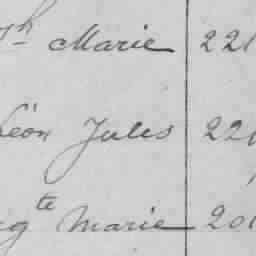 th Marie 221
Léon Jules 22
te Marie 201